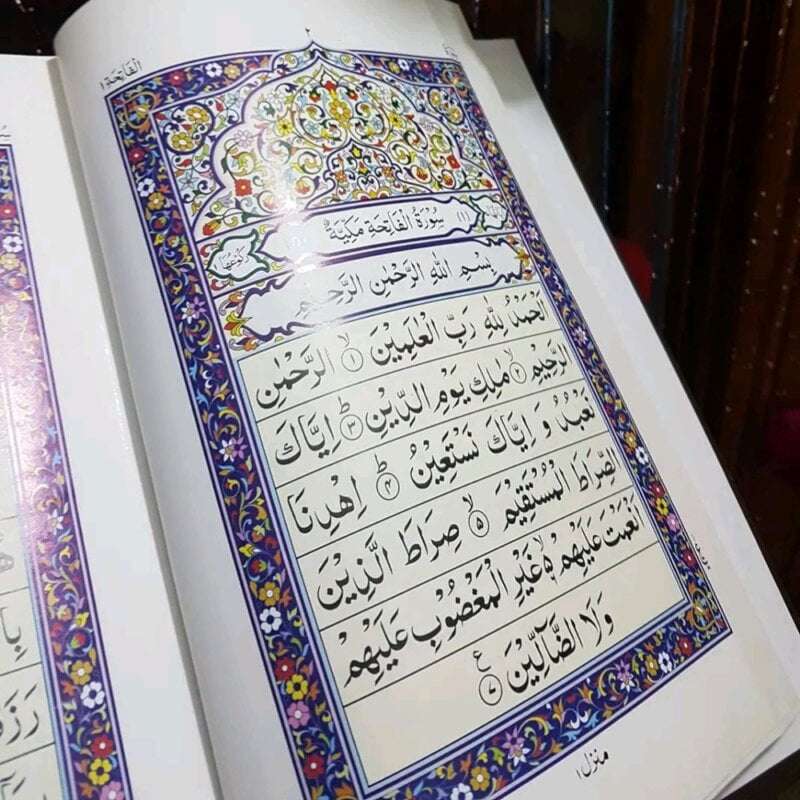 الفاتحة ١
سُوْرَةُ الْفَاتِحَةِ مَكِّيَّةٌ (١)
رُكُوْعُهَا
بِسْمِ اللهِ الرَّحْمٰنِ الرَّحِيْمِ
اَلْحَمْدُ لِلّٰهِ رَبِّ الْعٰلَمِيْنَ ۙ﴿١﴾ الرَّحْمٰنِ
الرَّحِيْمِ ۙ﴿٢﴾ مٰلِكِ يَوْمِ الدِّيْنِ ؕ﴿٣﴾ اِيَّاكَ
نَعْبُدُ وَ اِيَّاكَ نَسْتَعِيْنُ ؕ﴿٤﴾ اِهْدِنَا
الصِّرَاطَ الْمُسْتَقِيْمَ ۙ﴿٥﴾ صِرَاطَ الَّذِيْنَ
اَنْعَمْتَ عَلَيْهِمْ ۙ۬ غَيْرِ الْمَغْضُوْبِ عَلَيْهِمْ
وَلَا الضَّآلِّيْنَ ﴿٧﴾ ع
منزل ١
رَزَ